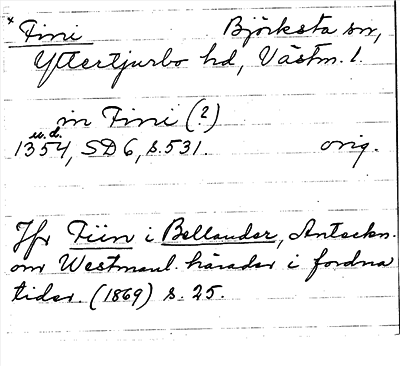 * Fini Björksta sn,
Yttertjurbo hd, Västm. l.
in Fini (?)
u.d.
1354, SD 6, s. 531. orig.
Jfr Fiin i Bellander, Anteckn.
om Westmanl. härader i fordna
tider. (1869) s. 25.